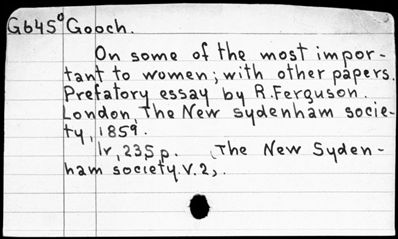 G645° Gooch.
On some of the most impor-
tant to women; with other papers.
Prefatory essay by R. Ferguson.
London, The New Sydenham socie-
ty, 1859.
lv, 235 p. (The New Syden-
ham society. v. 2).